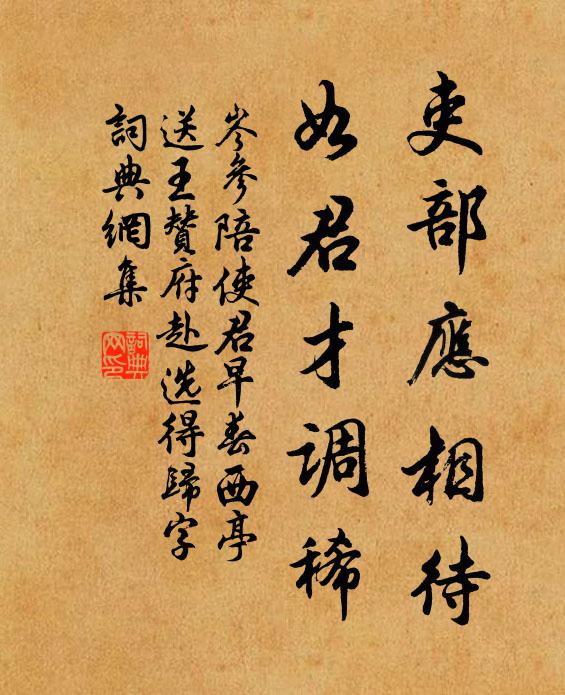 吏部應相待
如君才調稀
岑參陪使君早春西亭
送王贊府赴選得歸字
詞典網集
詞典
网印